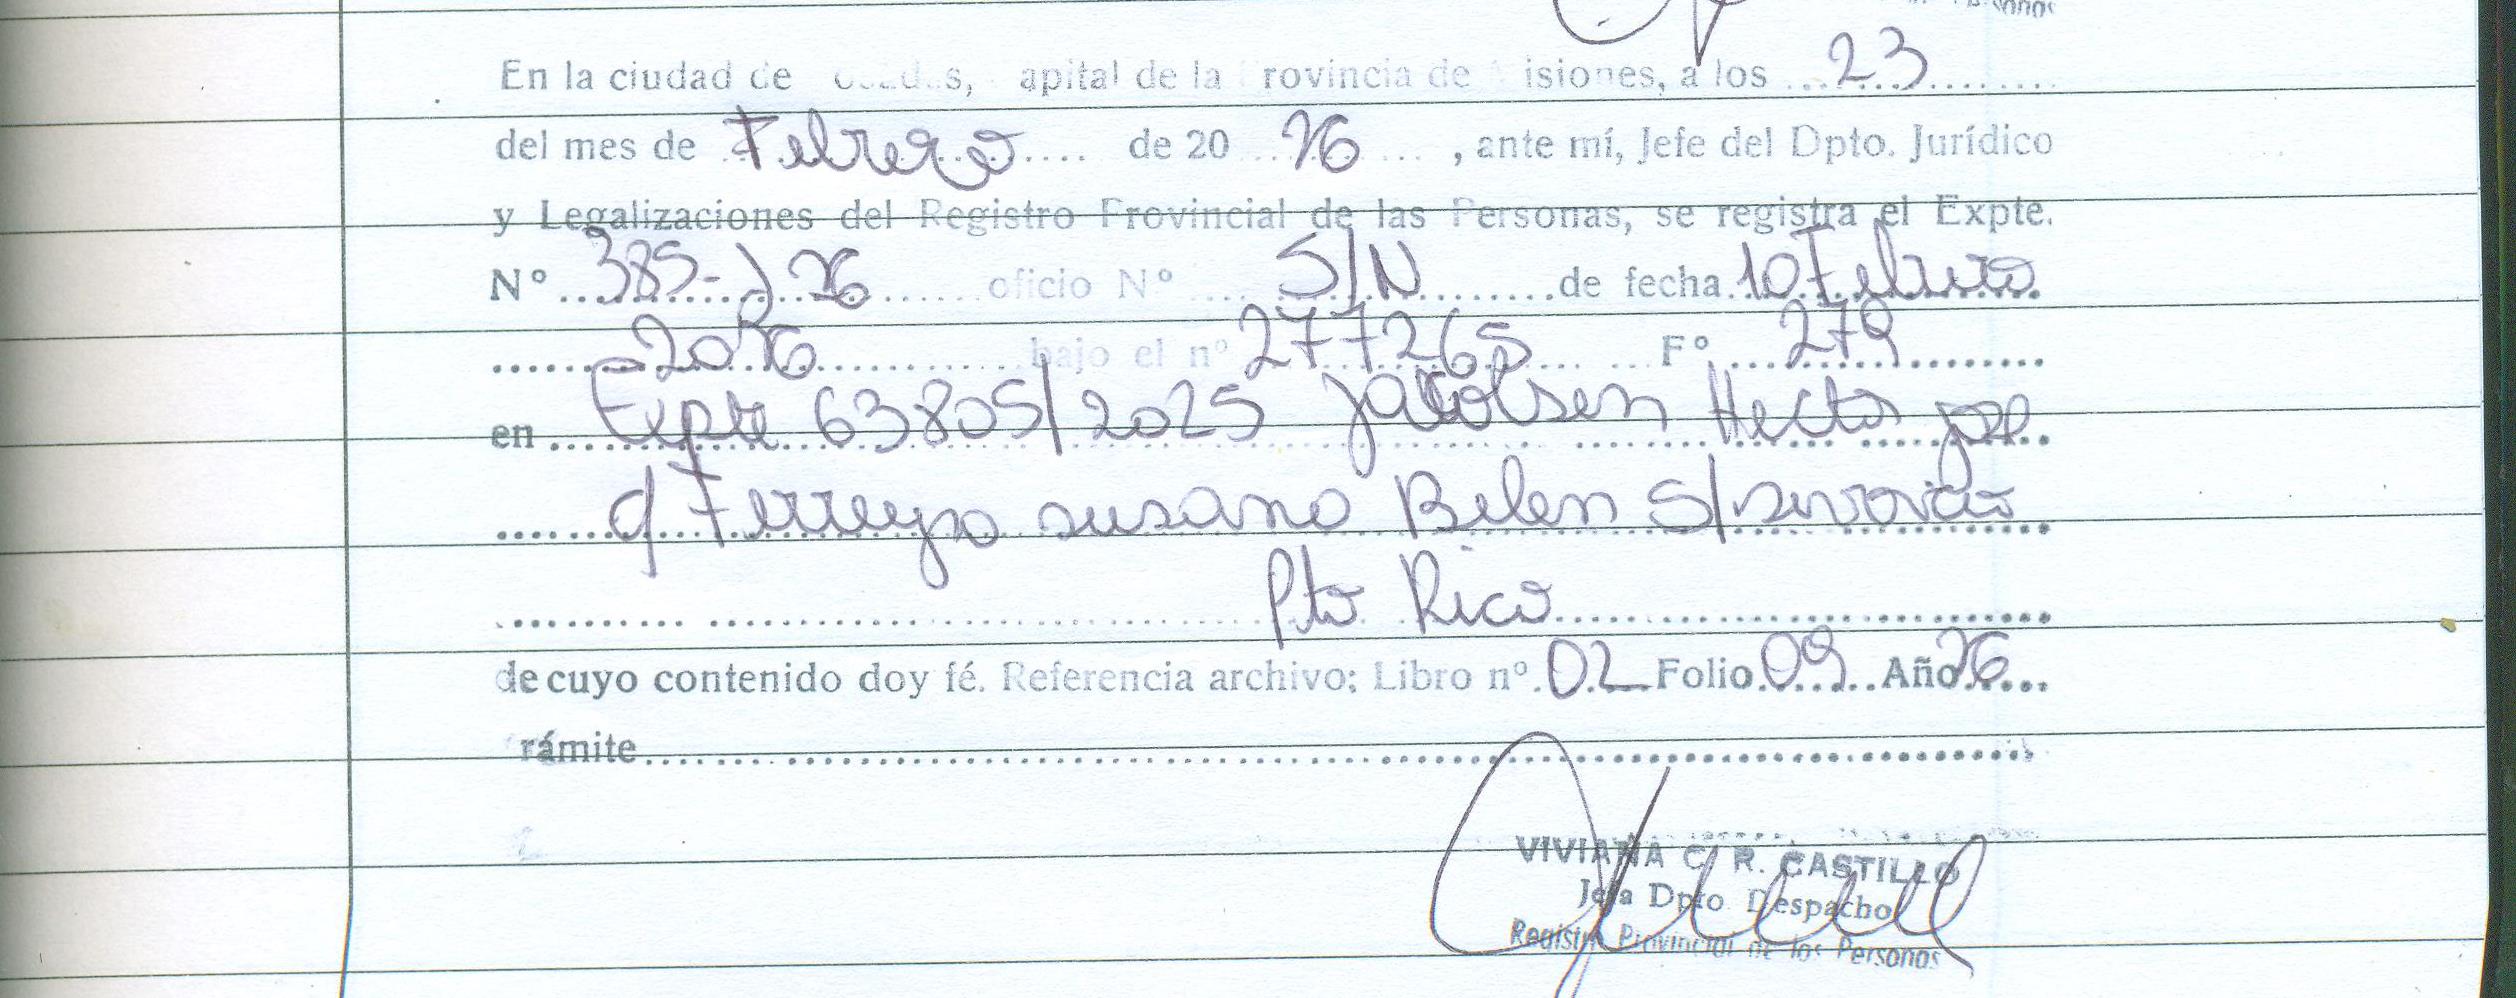 En la ciudad de Posadas, Capital de la Provincia de Misiones, a los 23
del mes de Febrero de 20 26, ante mí, Jefe del Dpto. Jurídico
y Legalizaciones del Registro Provincial de las Personas, se registra el Expte.
Nº 385-J 26 oficio Nº S/N de fecha 10 Febrero
2026 bajo el nº 277265 Fº 279
en Expte 63805/2025 Jacobsen Hector José
c/ Ferreyra Susana Belen S/ divorcio
Pto Rico
de cuyo contenido doy fé. Referencia archivo: Libro nº 02 Folio 09 Año 26
trámite
VIVIANA C. R. CASTILLO
Jefa Dpto Despacho
Registro Provincial de las Personas